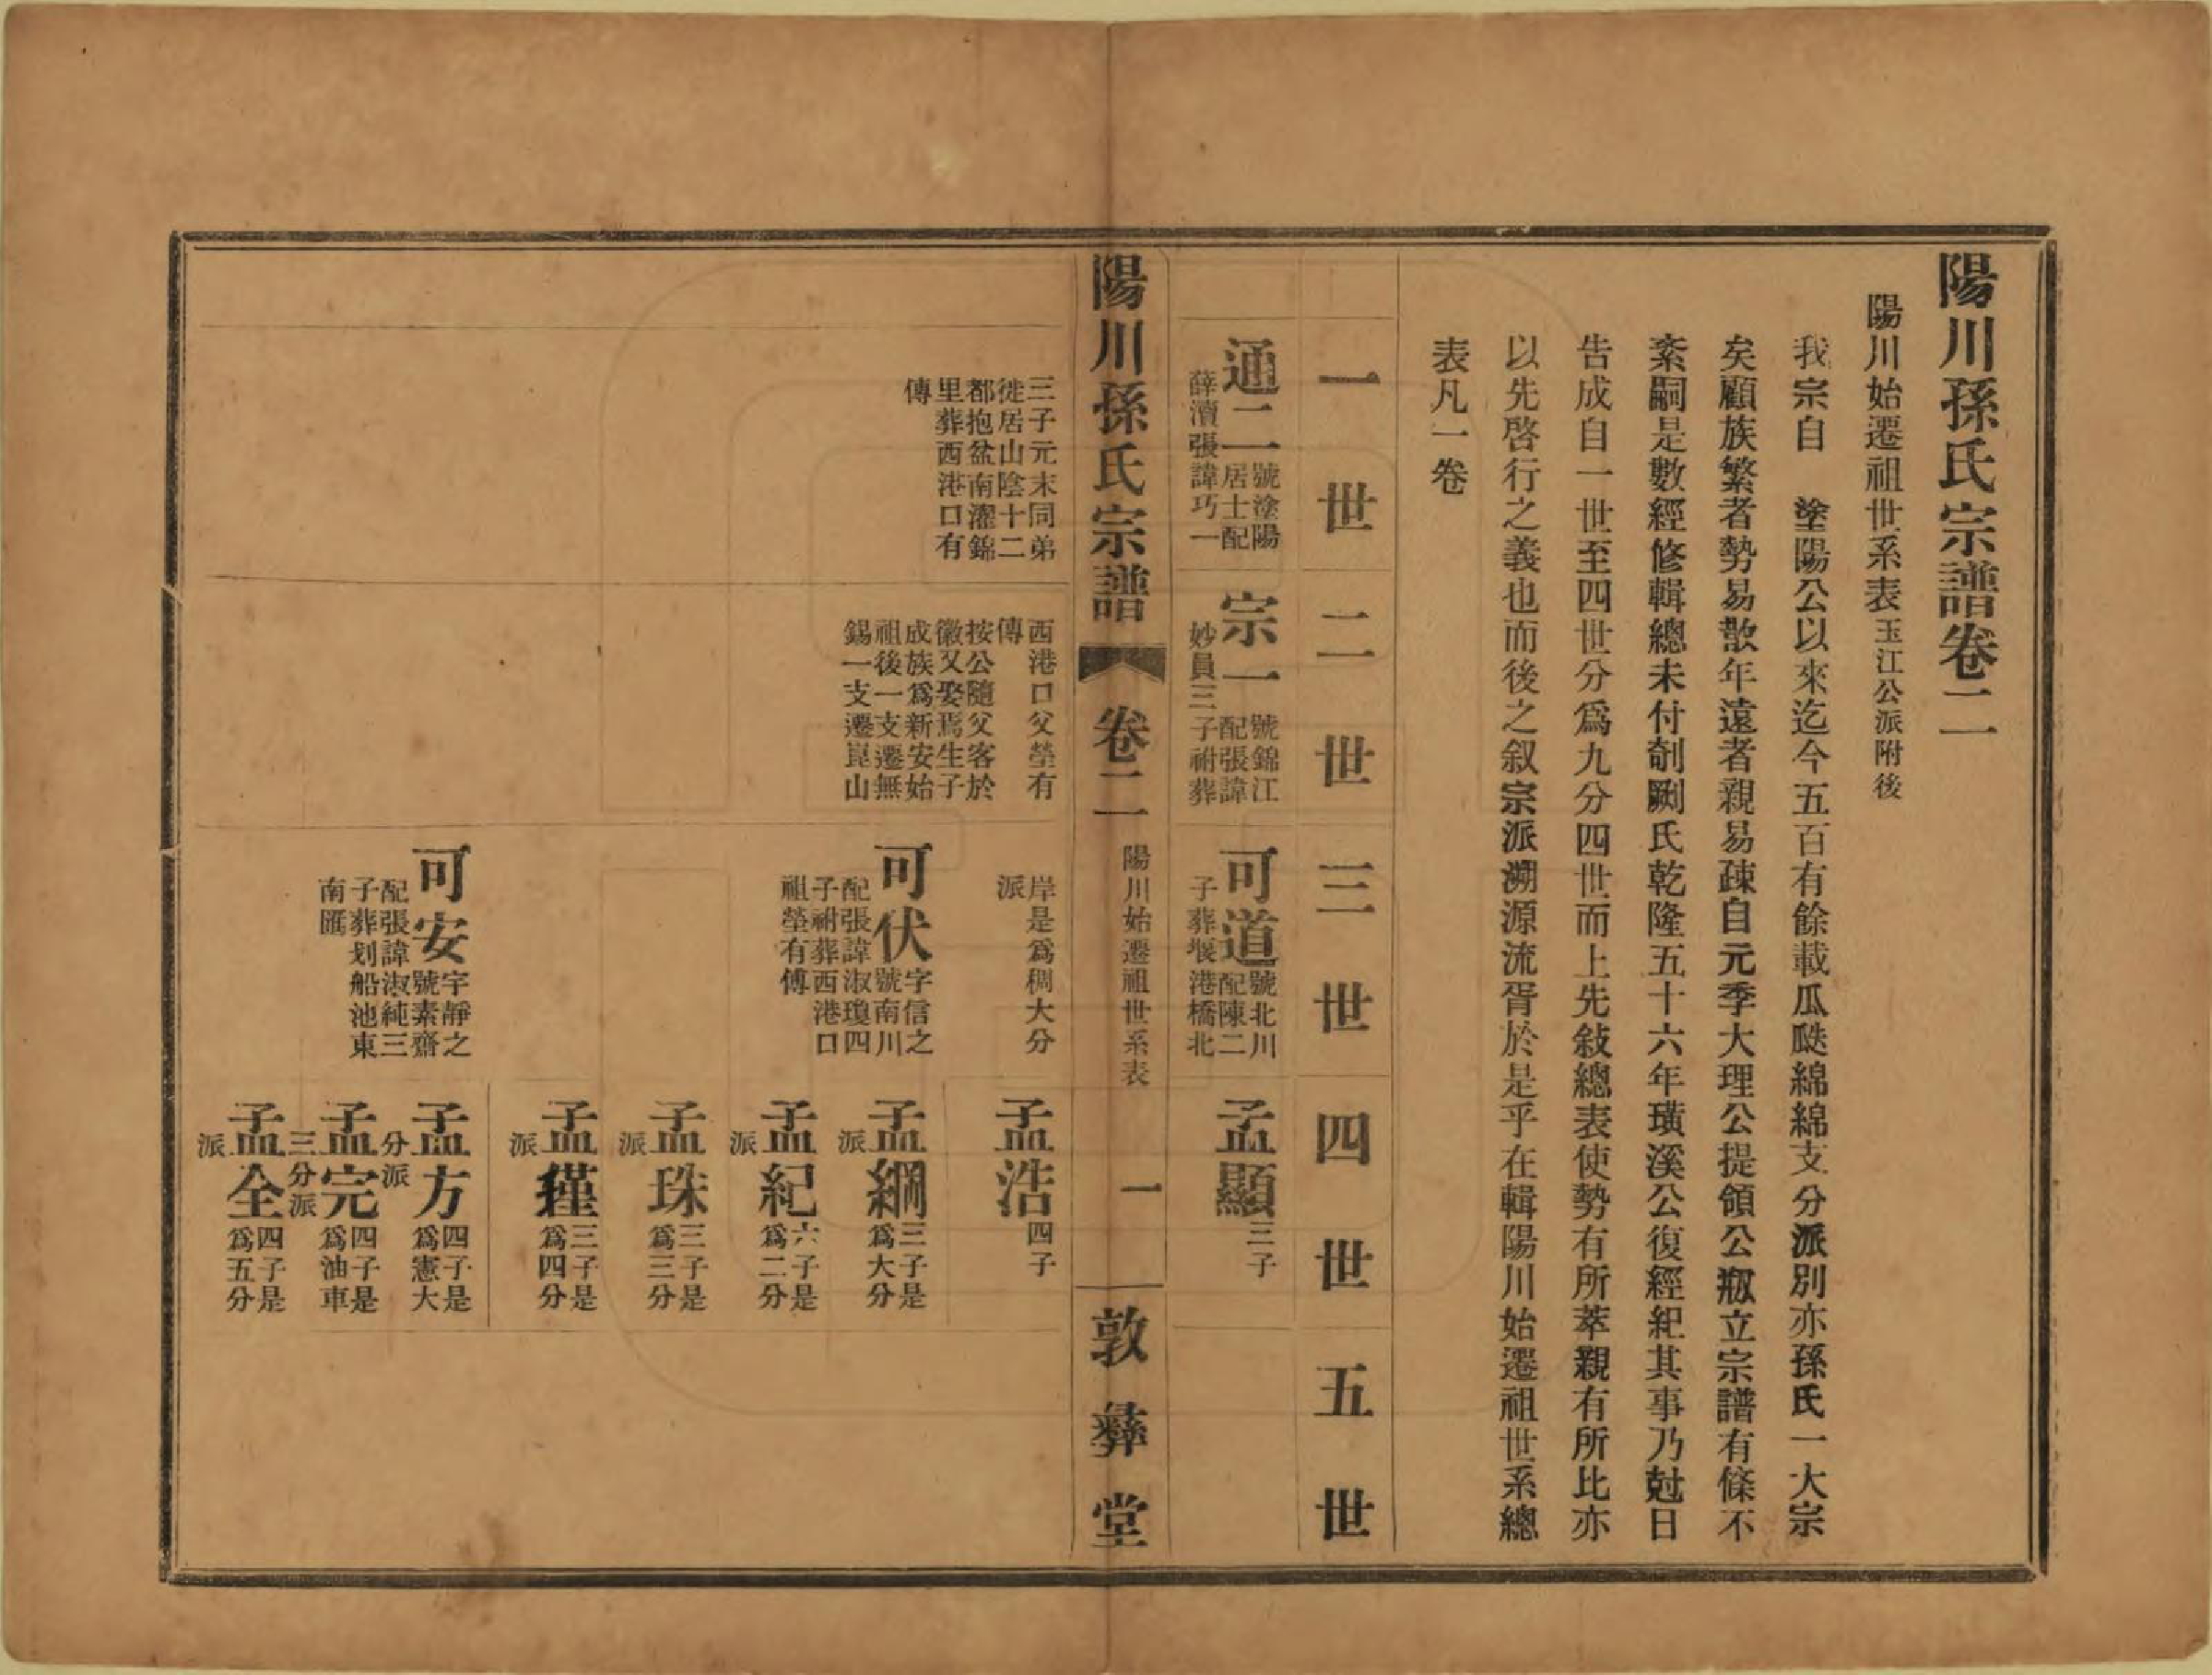 陽川孫氏宗譜卷二
陽川始遷祖世系表玉江公派附後
我宗自　塗陽公以來迄今五百有餘載瓜瓞綿綿支分派別亦孫氏一大宗
矣顧族繁者勢易散年遠者親易疎自元季大理公提領公瓶立宗譜有條不
紊嗣是數經修輯總未付剞劂氏乾隆五十六年璜溪公復經紀其事乃尅日
告成自一世至四世分爲九分四世而上先敍總表使勢有所萃親有所比亦
以先啓行之義也而後之叙宗派溯源流胥於是乎在輯陽川始遷祖世系總
表凡一卷
一世 二世 三世 四世 五世
通二 號塗陽
居士配
薛瀆張諱巧一
宗一 號錦江
配張諱
妙員三子祔葬
可道 號北川
配陳二
子葬堰港橋北
孟顯 三子
陽川孫氏宗譜 卷二 陽川始遷祖世系表 一 敦彝堂
三子元末同弟
徙居山陰十二
都抱盆南濯錦
里葬西港口有
傳
西港口父塋有
傳
按公隨父客於
徽又娶焉生子
成族爲新安始
祖後一支遷無
錫一支遷崑山
岸是爲稠大分
派
孟浩 四子
可伏 字信之
號南川
配張諱淑瓊四
子祔葬西港口
祖塋有傳
孟綱 三子是
爲大分
派
孟紀 六子是
爲二分
派
孟珠 三子是
爲三分
派
孟瑾 三子是
爲四分
派
可安 字靜之
號素齋
配張諱淑純三
子葬划船池東
南匯
孟方 四子是
爲憲大
分派
孟完 四子是
爲油車
三分派
孟全 四子是
爲五分
派